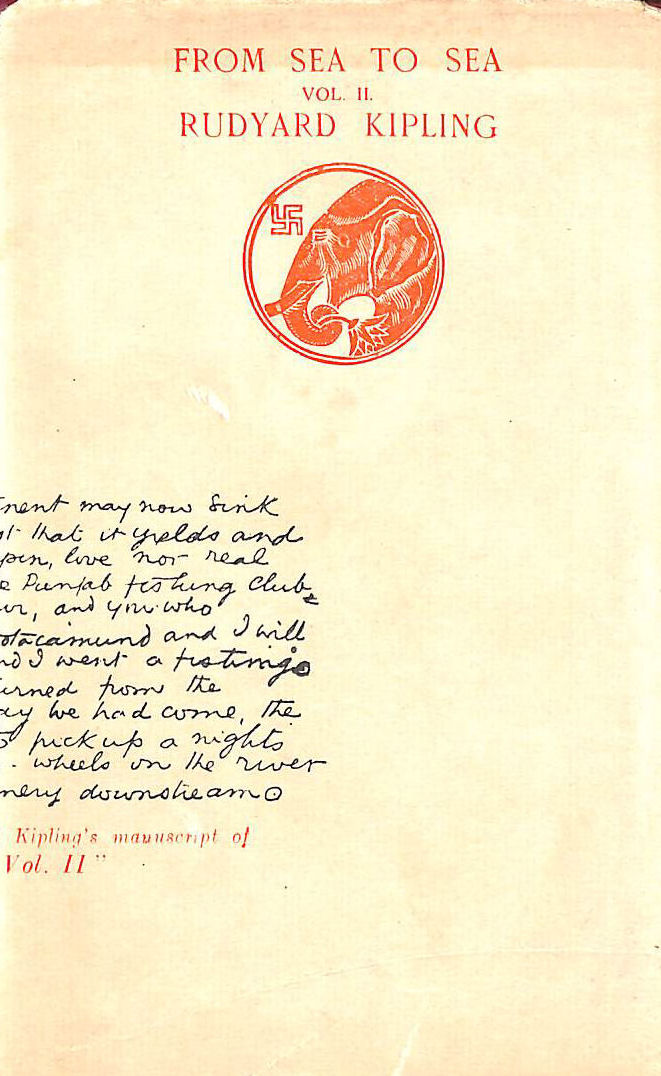 FROM SEA TO SEA
VOL. II.
RUDYARD KIPLING
nent may now sink
that it yields and
pen, love nor real
e Punjab fishing club
and you who
otacamund and I will
nd I went a fishing
urned from the
ay we had come, the
pick up a nights
wheels on the river
nery downstream
Kipling's manuscript of
Vol. II"